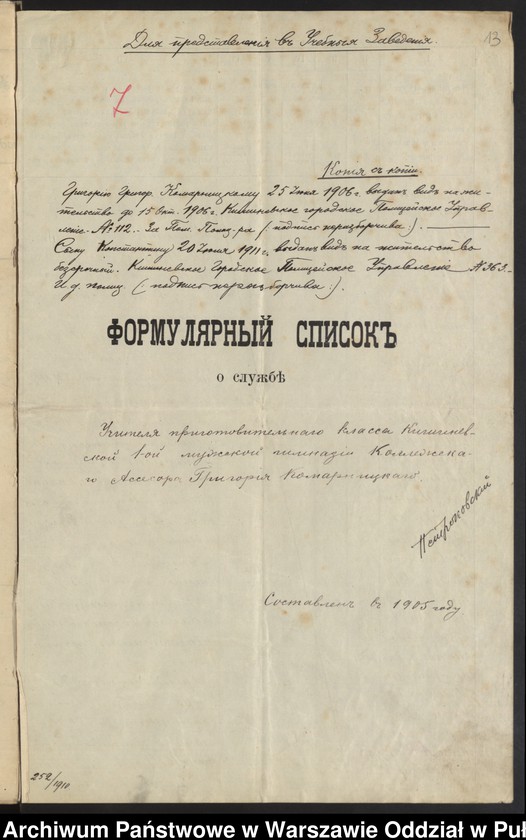 Для представленія въ Учебныя Заведенія.
13
7
Копія съ копіи.
Григорію Григор. Комарницкому 25 Іюня 1906 г. выданъ видъ на жи-
тельство до 15 окт. 1906 г. Кишиневское городское Полицейское Управ-
леніе № 112. За Пом. Полиц-ра (подпись неразборчива).
Сыну Константину 20 Іюля 1911 г. выданъ видъ на жительство
безсрочный. Кишиневское Городское Полицейское Управленіе № 363.-
И. д. полиц (подпись неразборчива:).
ФОРМУЛЯРНЫЙ СПИСОКЪ
о службѣ
Учителя приготовительнаго класса Кишинев-
ской 1-ой мужской гимназіи Коллежска-
го Асесора Григорія Комарницкаго.
Составленъ въ 1905 году.
252/1911
Archiwum Państwowe w Warszawie Oddział w Puł